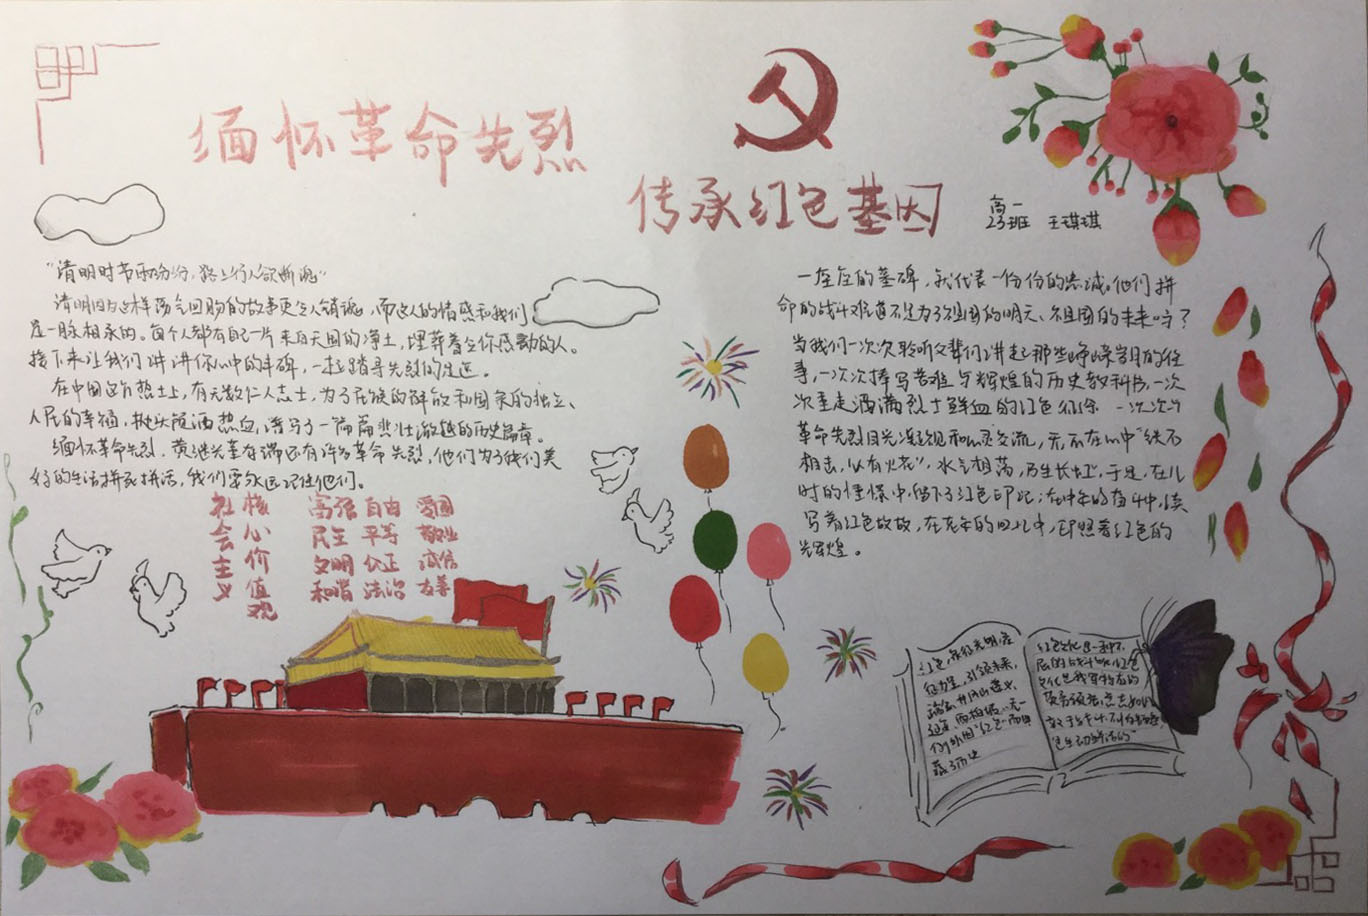 缅怀革命先烈
传承红色基因
高一
23班 王琪琪
"清明时节雨纷纷，路上行人欲断魂"
清明因为这样荡气回肠的故事更令人销魂，而这人的情感和我们
是一脉相承的。每个人都有自己一片来自天国的净土，埋葬着令你感动的人。
接下来让我们讲讲你心中的丰碑，一起踏寻先烈的足迹。
在中国这片热土上，有无数仁人志士，为了民族的解放和国家的独立、
人民的幸福，抛头颅洒热血，谱写了一篇篇悲壮激越的历史篇章。
缅怀革命先烈，黄继光董存瑞还有许多革命先烈，他们为了我们美
好的生活拼死拼活，我们要永远记住他们。
社会主义
核心价值观
富强 自由 爱国
民主 平等 敬业
文明 公正 诚信
和谐 法治 友善
一座座的墓碑，就代表一份份的忠诚。他们拼
命的战斗难道不是为了祖国的明天、祖国的未来吗？
当我们一次次聆听父辈们讲起那些峥嵘岁月的往
事，一次次捧写苦难与辉煌的历史教科书，一次
次重走洒满烈士鲜血的红色征途 一次次与
革命先烈目光凝视和心灵交流，无不在心中
相击，以有火花"，水气相荡，乃生长虹"，于是，在儿
时的憧憬中，留下了红色印记；在中年的奋斗中，续
写着红色故放，在老年的回忆中，即照着红色的
辉煌。
红色，象征光明，凝
力量，引领未来，